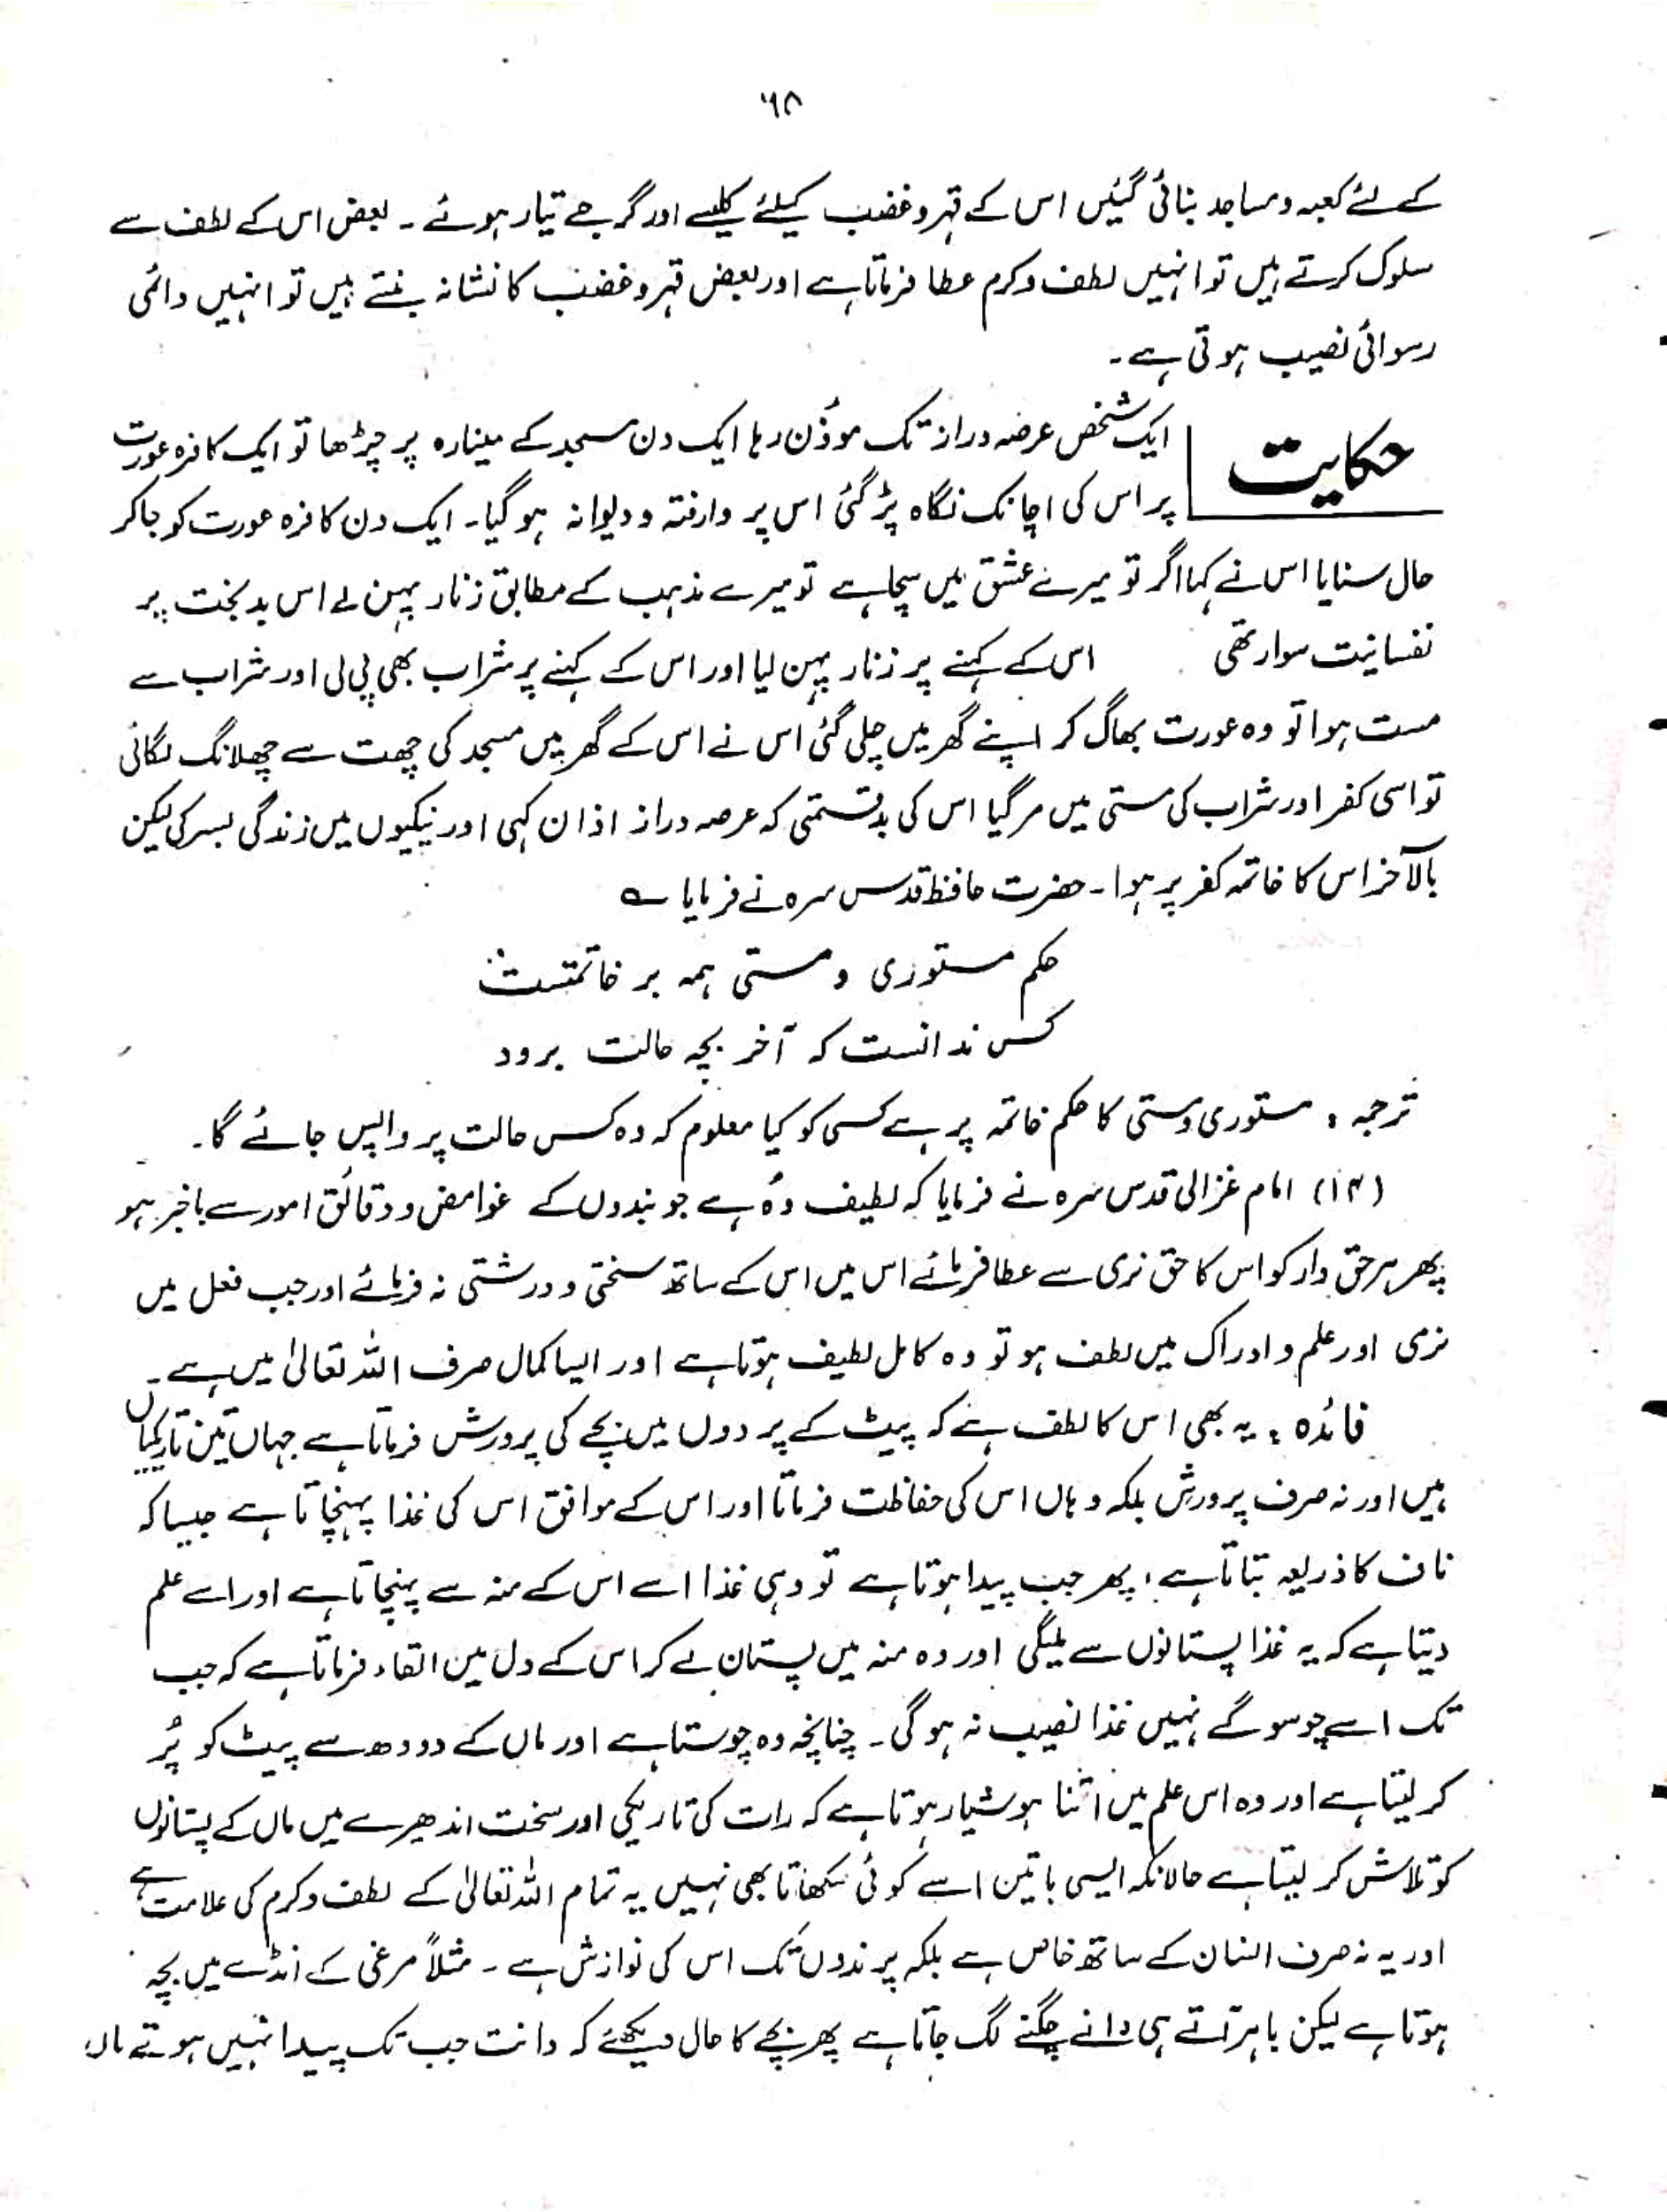 ۶۸
کے لئے کعبہ و مساجد بنائی گئیں اس کے قہر و غضب کیلئے کلیسے اور گرجے تیار ہوئے ۔ بعض اس کے لطف سے
سلوک کرتے ہیں تو انہیں لطف و کرم عطا فرماتا ہے اور بعض قہر و غضب کا نشانہ بنتے ہیں تو انہیں دائمی
رسوائی نصیب ہوتی ہے ۔
حکایت
ایک شخص عرصہ دراز تک موذن رہا ایک دن مسجد کے مینارہ پر چڑھا تو ایک کافرہ عورت
پر اس کی اچانک نگاہ پڑ گئی اس پر وارفتہ و دیوانہ ہو گیا ۔ ایک دن کافرہ عورت کو جا کر
حال سنایا اس نے کہا اگر تو میرے عشق میں سچا ہے تو میرے مذہب کے مطابق زنار پہن لے اس بدبخت پر
نفسانیت سوار تھی اس کے کہنے پر زنار پہن لیا اور اس کے کہنے پر شراب بھی پی لی اور شراب سے
مست ہوا تو وہ عورت بھاگ کر اپنے گھر میں چلی گئی اس نے اس کے گھر میں مسجد کی چھت سے چھلانگ لگائی
تو اسی کفر اور شراب کی مستی میں مر گیا اس کی بدقسمتی کہ عرصہ دراز اذان کہی اور نیکیوں میں زندگی بسر کی لیکن
بالآخر اس کا خاتمہ کفر پر ہوا ۔ حضرت حافظ قدس سرہ نے فرمایا ؎
حکم مستوری و مستی ہمہ بر خاتمتست
کس ندانست کہ آخر بچہ حالت برود
ترجمہ : مستوری و مستی کا حکم خاتمہ پر ہے کسی کو کیا معلوم کہ وہ کس حالت پر واپس جائے گا ۔
(۱۴) امام غزالی قدس سرہ نے فرمایا کہ لطیف وہ ہے جو بندوں کے غوامض و دقائق امور سے باخبر ہو
پھر ہر حق دار کو اس کا حق نرمی سے عطا فرمائے اس میں اس کے ساتھ سختی و درشتی نہ فرمائے اور جب فعل میں
نرمی اور علم و ادراک میں لطف ہو تو وہ کامل لطیف ہوتا ہے اور ایسا کمال صرف اللہ تعالیٰ میں ہے ۔
فائدہ : یہ بھی اس کا لطف ہے کہ پیٹ کے پردوں میں بچے کی پرورش فرماتا ہے جہاں تین تاریکیاں
ہیں اور نہ صرف پرورش بلکہ وہاں اس کی حفاظت فرماتا اور اس کے موافق اس کی غذا پہنچاتا ہے جیسا کہ
ناف کا ذریعہ بتاتا ہے ، پھر جب پیدا ہوتا ہے تو وہی غذا اسے اس کے منہ سے پہنچاتا ہے اور اسے علم
دیتا ہے کہ یہ غذا پستانوں سے ملیگی اور وہ منہ میں پستان لے کر اس کے دل میں القاء فرماتا ہے کہ جب
تک اسے چوسو گے نہیں غذا نصیب نہ ہو گی ۔ چنانچہ وہ چوستا ہے اور ماں کے دودھ سے پیٹ کو پُر
کر لیتا ہے اور وہ اس علم میں اتنا ہوشیار ہوتا ہے کہ رات کی تاریکی اور سخت اندھیرے میں ماں کے پستانوں
کو تلاش کر لیتا ہے حالانکہ ایسی باتیں اسے کوئی سکھاتا بھی نہیں یہ تمام اللہ تعالیٰ کے لطف و کرم کی علامت ہے
اور یہ نہ صرف انسان کے ساتھ خاص ہے بلکہ پرندوں تک اس کی نوازش ہے ۔ مثلاً مرغی کے انڈے میں بچہ
ہوتا ہے لیکن باہر آتے ہی دانے چگنے لگ جاتا ہے پھر بچے کا حال دیکھئے کہ دانت جب تک پیدا نہیں ہوتے ماں